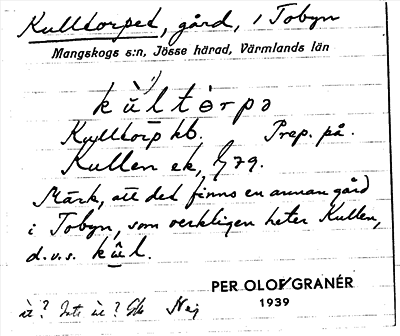 Kulltorpet, gård, i Tobyn
Mangskogs s:n, Jösse härad, Värmlands län
kùltòrpə
Kulltorp kb. Prep. på.
Kullen ek, 79.
Märk, att det finns en annan gård
i Tobyn, som verkligen heter Kullen,
d.v.s. kûl.
PER OLOF GRANÉR
1939
Nej